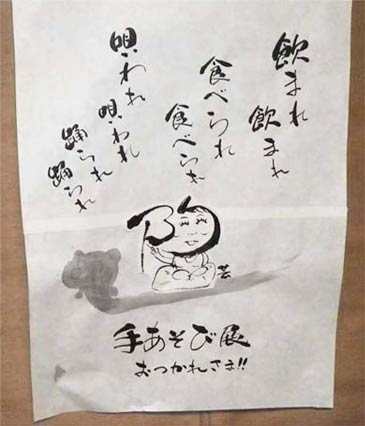 飲まれ
飲まれ
食べられ
食べられ
唄われ
唄われ
踊られ
踊られ
芸
手あそび展
おつかれさま!!